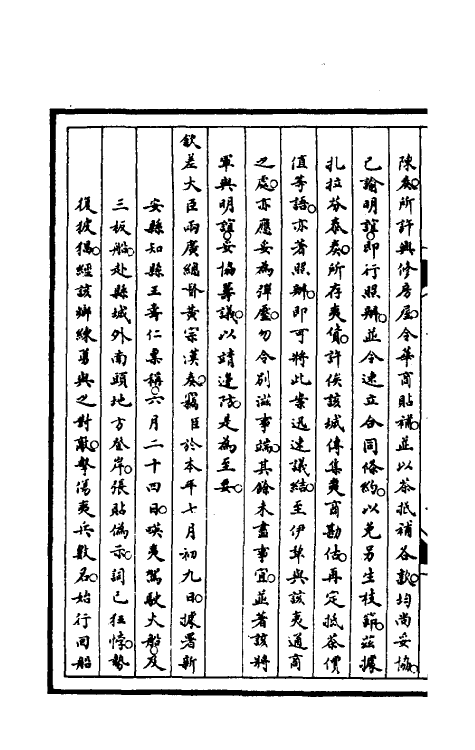 陳奏所許與修房屋。令華商貼補。並以茶抵補各款。均尚妥協。
已諭明誼。即行照辦。並令速立合同條約。以免另生枝節。茲據
扎拉芬泰奏。所存夷貨。許俟該城傳集夷商勘估。再定抵茶價
值等語。亦著照辦。即可將此案迅速議結。至伊犂與該夷通商
之處。亦應妥為彈壓。勿令別滋事端。其餘未盡事宜。並著該將
軍與明誼。妥協籌議。以靖邊陲。是為至要。
欽差大臣兩廣總督黃宗漢奏。竊臣於本年七月初九日。據署新
安縣知縣王壽仁稟稱。六月二十四日。暎夷駕駛大船。及
三板船。赴縣城外南頭地方登岸。張貼偽示。詞已狂悖。勢
復披猖。經該鄉練勇與之對敵。擊傷夷兵數名。始行回船